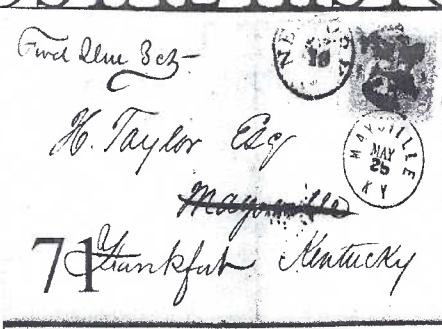 Fwd Due 3cts
NE
H. Taylor Esq
MAYSVILLE
MAY
25
KY
Maysville
71
Frankfort Kentucky